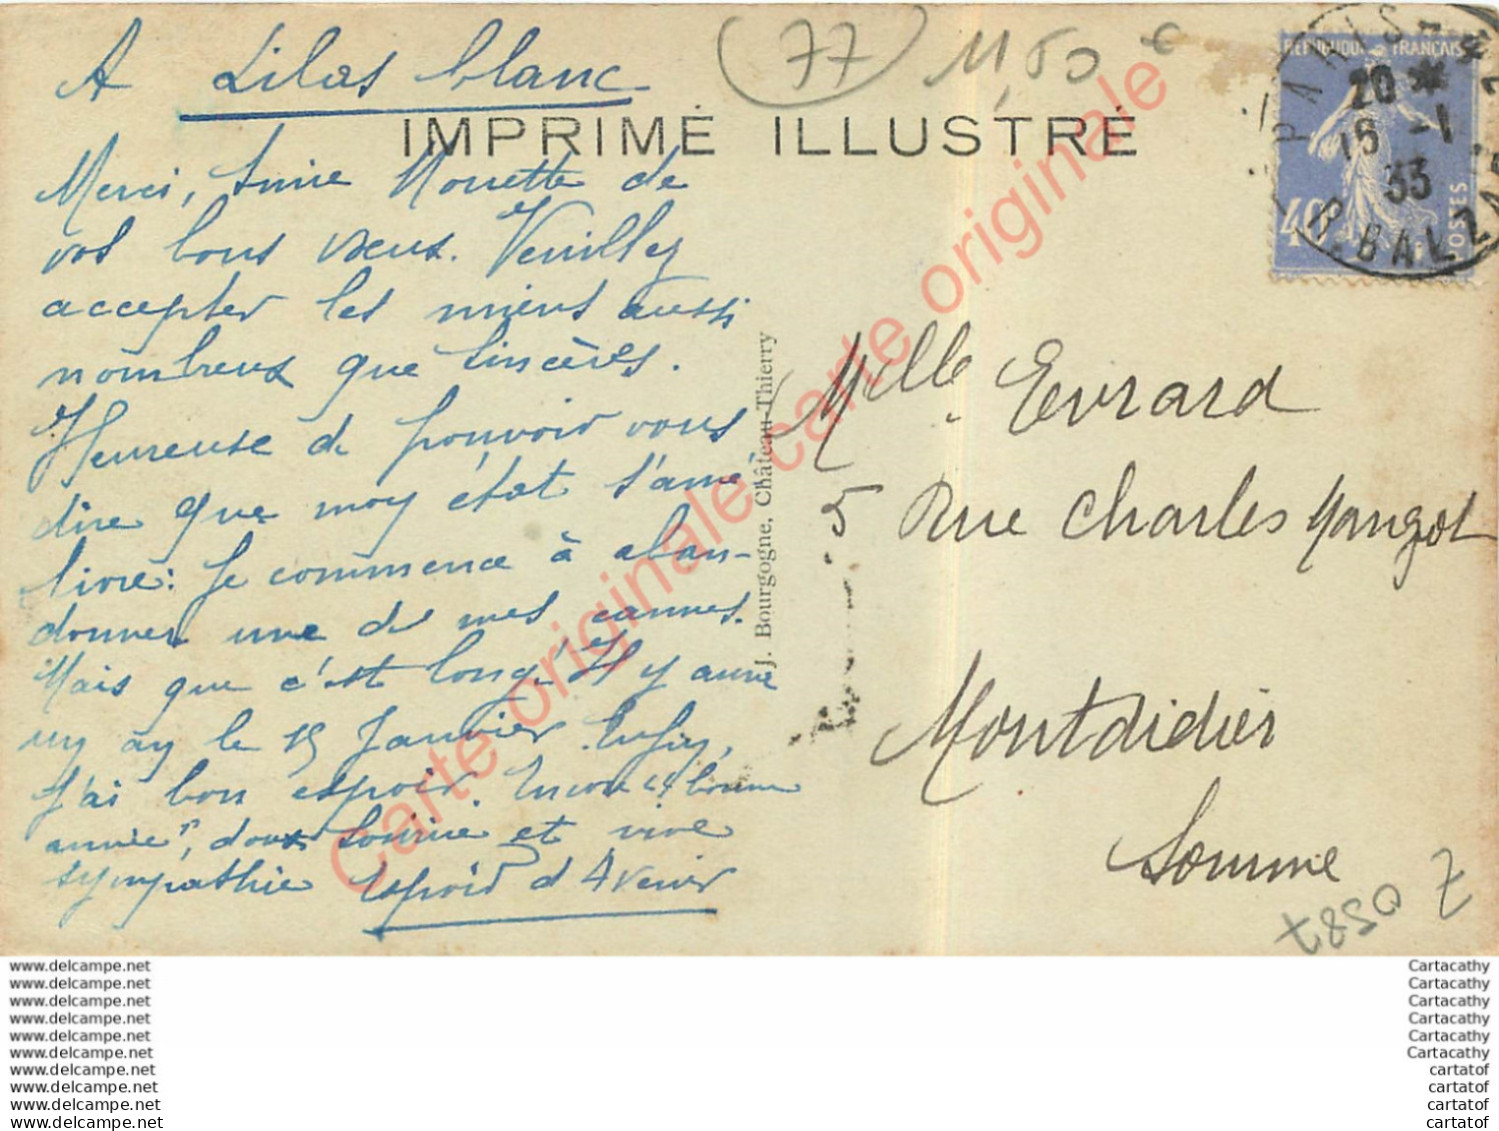 A Lilas blanc
(77) 11,50 €
IMPRIMÉ ILLUSTRÉ
Merci, Amie Mouette de
vos bons vœux. Veuillez
accepter les miens aussi
nombreux que sincères.
Heureuse de pouvoir vous
dire que moy état s'amé
liore : Je commence à aban-
donner une de mes cannes.
Mais que c'est long! Il y aura
uy ay le 15 Janvier. Enfiy,
j'ai bon espoir. Encore "bonne
année", doux sourire et vive
sympathie Espoir d'Avenir
J. Bourgogne, Château-Thierry
REPUBLIQUE FRANÇAISE
40
POSTES
PARIS
20 *
16 -1
33
R. BALZAC
Mlle Evrard
5 Rue Charles Mangot
Montdidier
Somme
Carte originale carte originale Carte originale carte originale
www.delcampe.net
www.delcampe.net
www.delcampe.net
www.delcampe.net
www.delcampe.net
www.delcampe.net
www.delcampe.net
www.delcampe.net
www.delcampe.net
www.delcampe.net
Cartacathy
Cartacathy
Cartacathy
Cartacathy
Cartacathy
Cartacathy
cartatof
cartatof
cartatof
cartatof